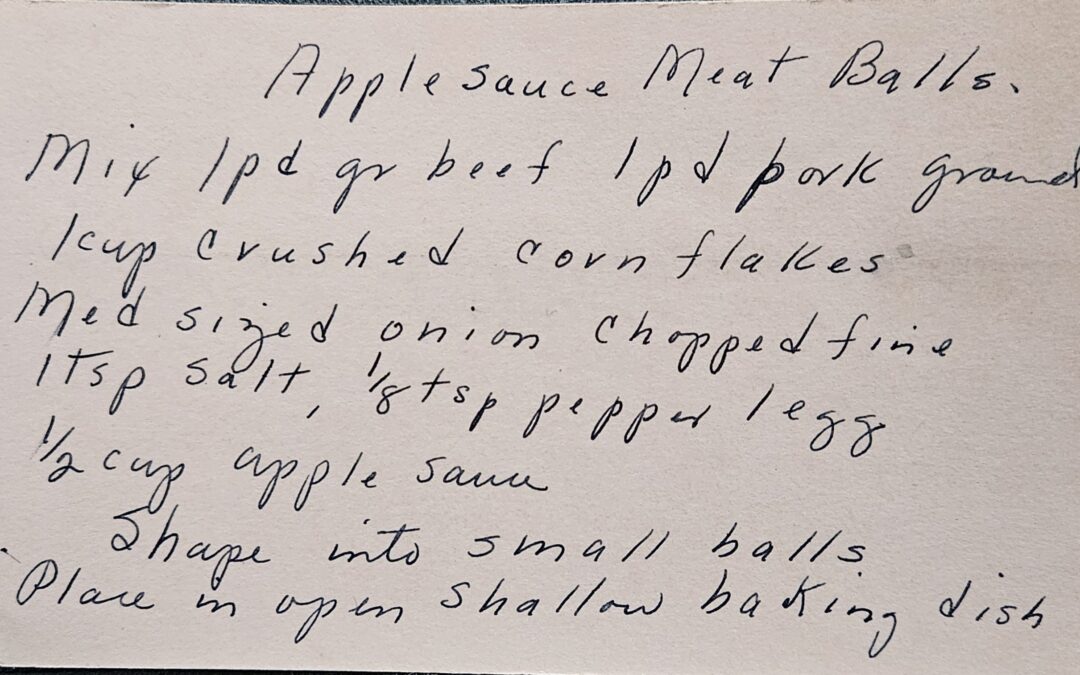 Apple sauce Meat Balls.
Mix 1pd gr beef 1pd pork ground
1cup crushed corn flakes
Med sized onion chopped fine
1Tsp salt, 1/8 tsp pepper 1 egg
1/2 cup apple sauce
Shape into small balls
Place in open shallow baking dish